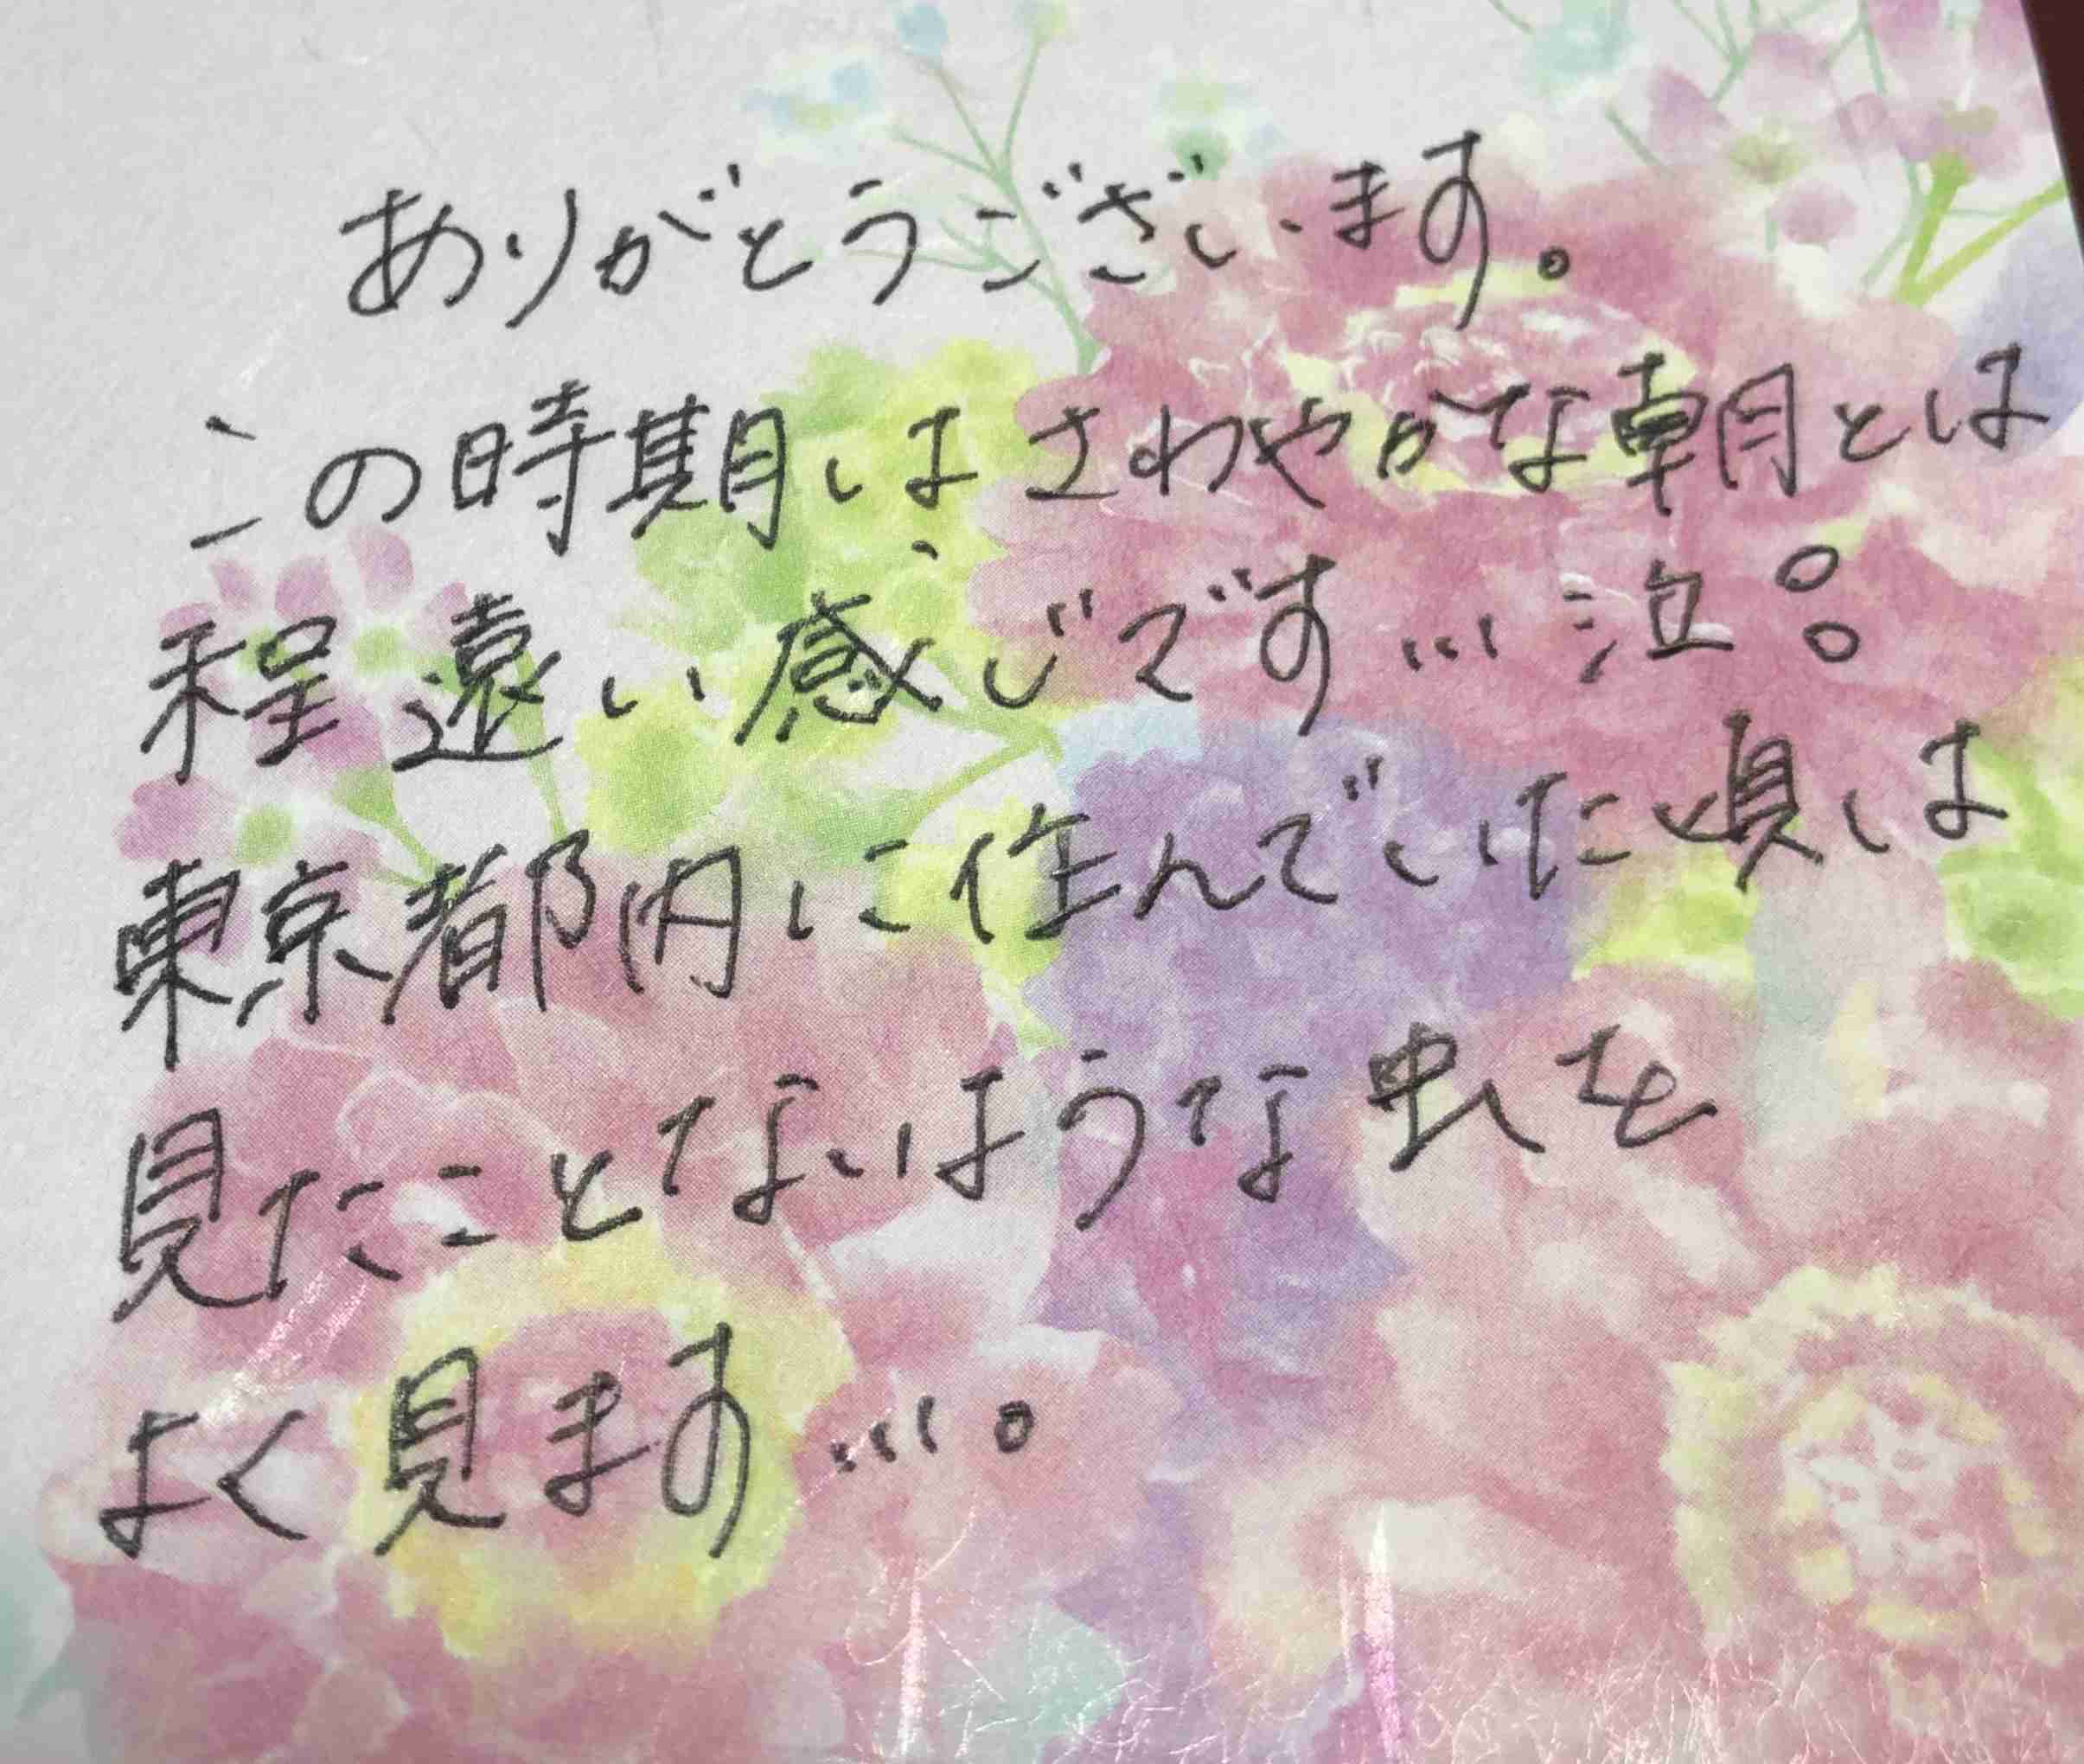 ありがとうございます。
この時期はさわやかな朝とは
程遠い感じです…泣。。
東京都内に住んでいた頃は
見たことないような虫を
よく見ます…。